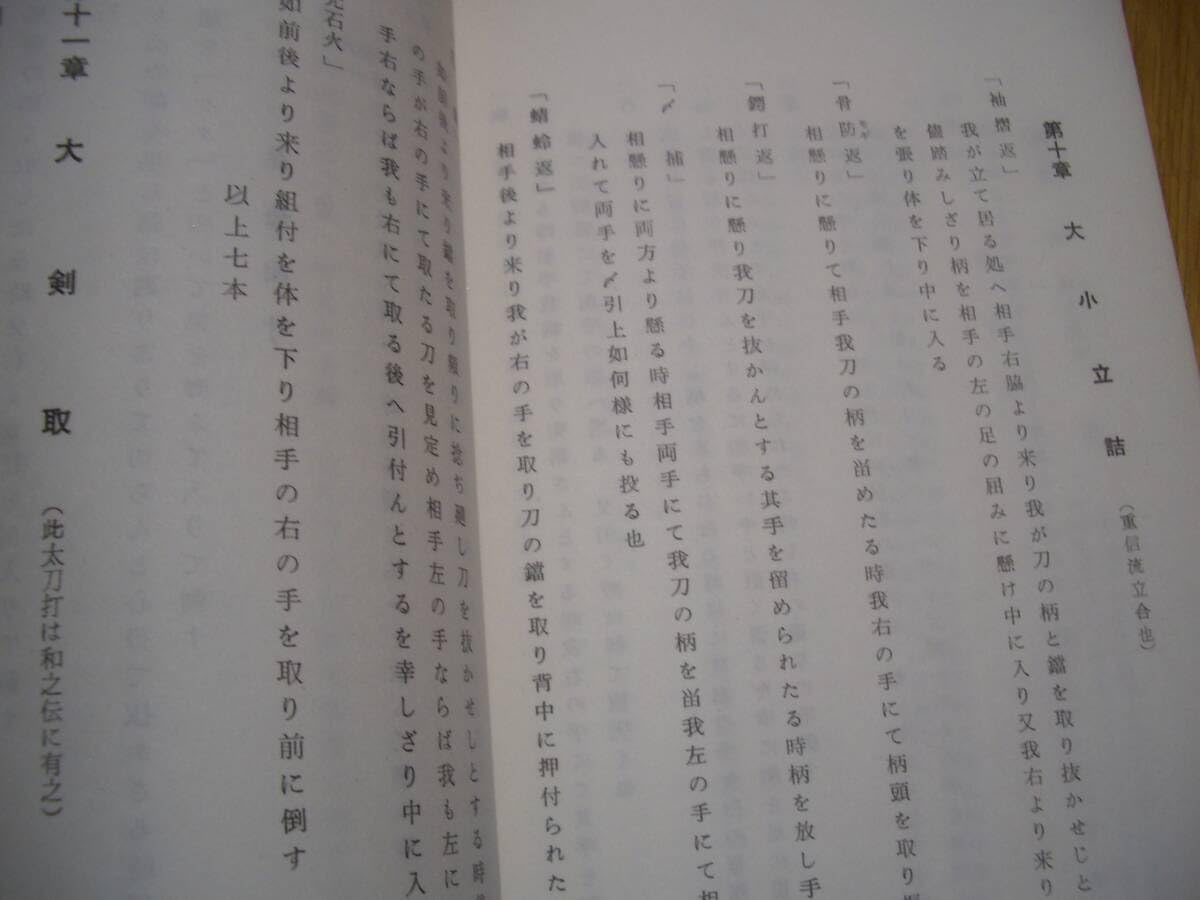 第十章 大小立詰 (重信流立合也)
「袖摺返」
我が立て居る処へ相手右脇より来り我が刀の柄と鐺を取り抜かせじと
儘踏みしざり柄を相手の左の足の屈みに懸け中に入り又我右より来り
を張り体を下り中に入る
「骨防返」
相懸りに懸りて相手我刀の柄を㘴めたる時我右の手にて柄頭を取り
「鍔打返」
相懸りに懸り我刀を抜かんとする其手を留められたる時柄を放し手
「〆捕」
相懸りに両方より懸る時相手両手にて我刀の柄を当我左の手にて相
入れて両手を〆引上如何様にも投る也
「蜻蛉返」
相手後より来り我が右の手を取り刀の鐺を取り背中に押付られた
如前後より来り鐺を取り頻りに捻ぢ廻し刀を抜かせじとする時
の手が右の手にて取たる刀を見定め相手左の手ならば我も左に
手右ならば我も右にて取る後へ引付んとするを幸しざり中に入
石火」
如前後より来り組付を体を下り相手の右の手を取り前に倒す
以上七本
十一章 大剣取 (此太刀打は和之伝に有之)